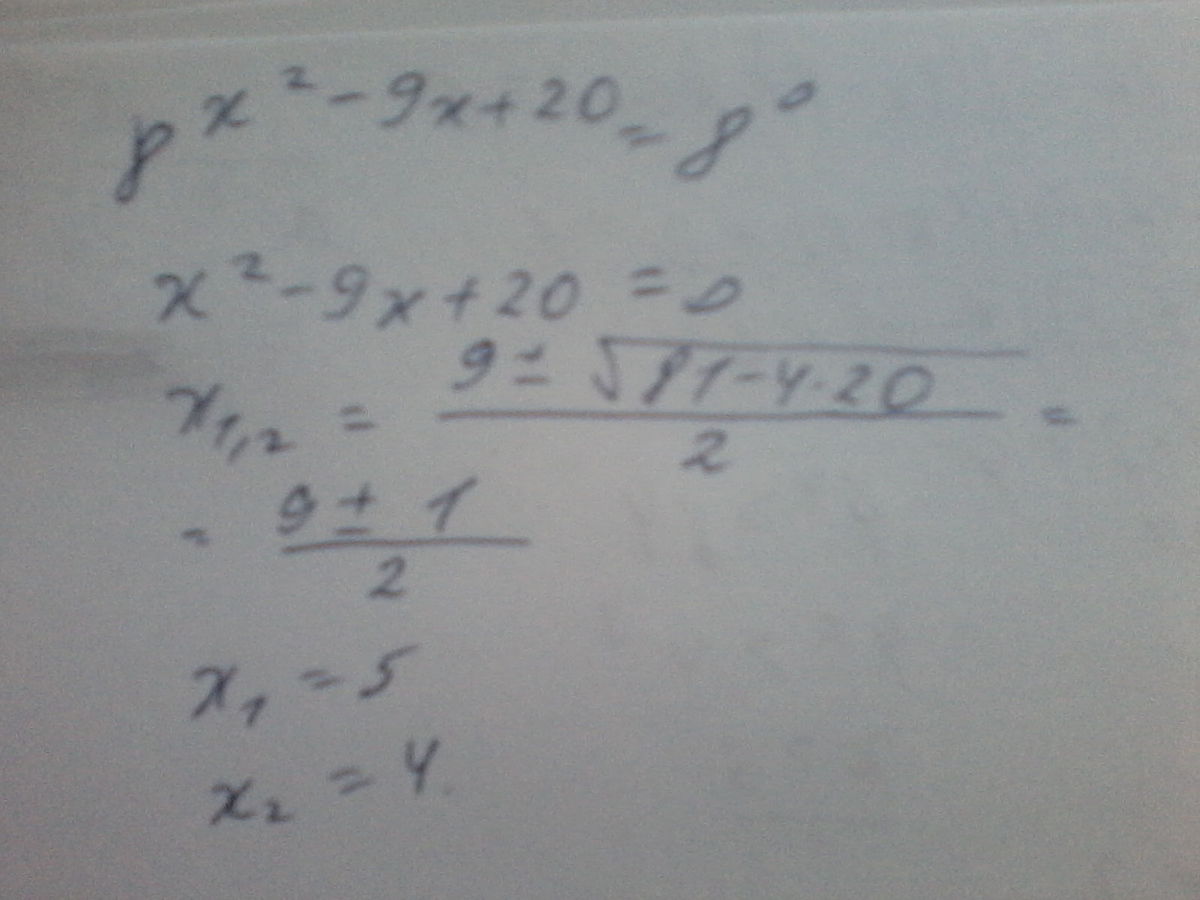 8^{x^2-9x+20}=8^0
x^2-9x+20=0
x_{1,2}=\frac{9±\sqrt{81-4·20}}{2}=
=\frac{9±1}{2}
x_1=5
x_2=4.